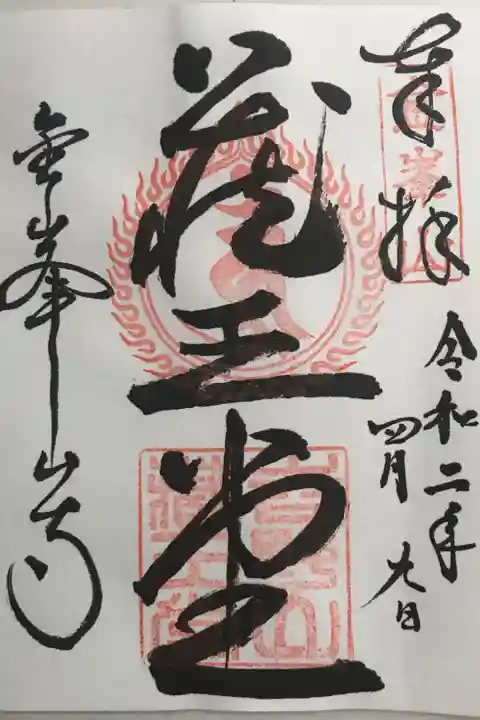 奉拝
令和二年
四月九日
蔵王堂
金峯山寺